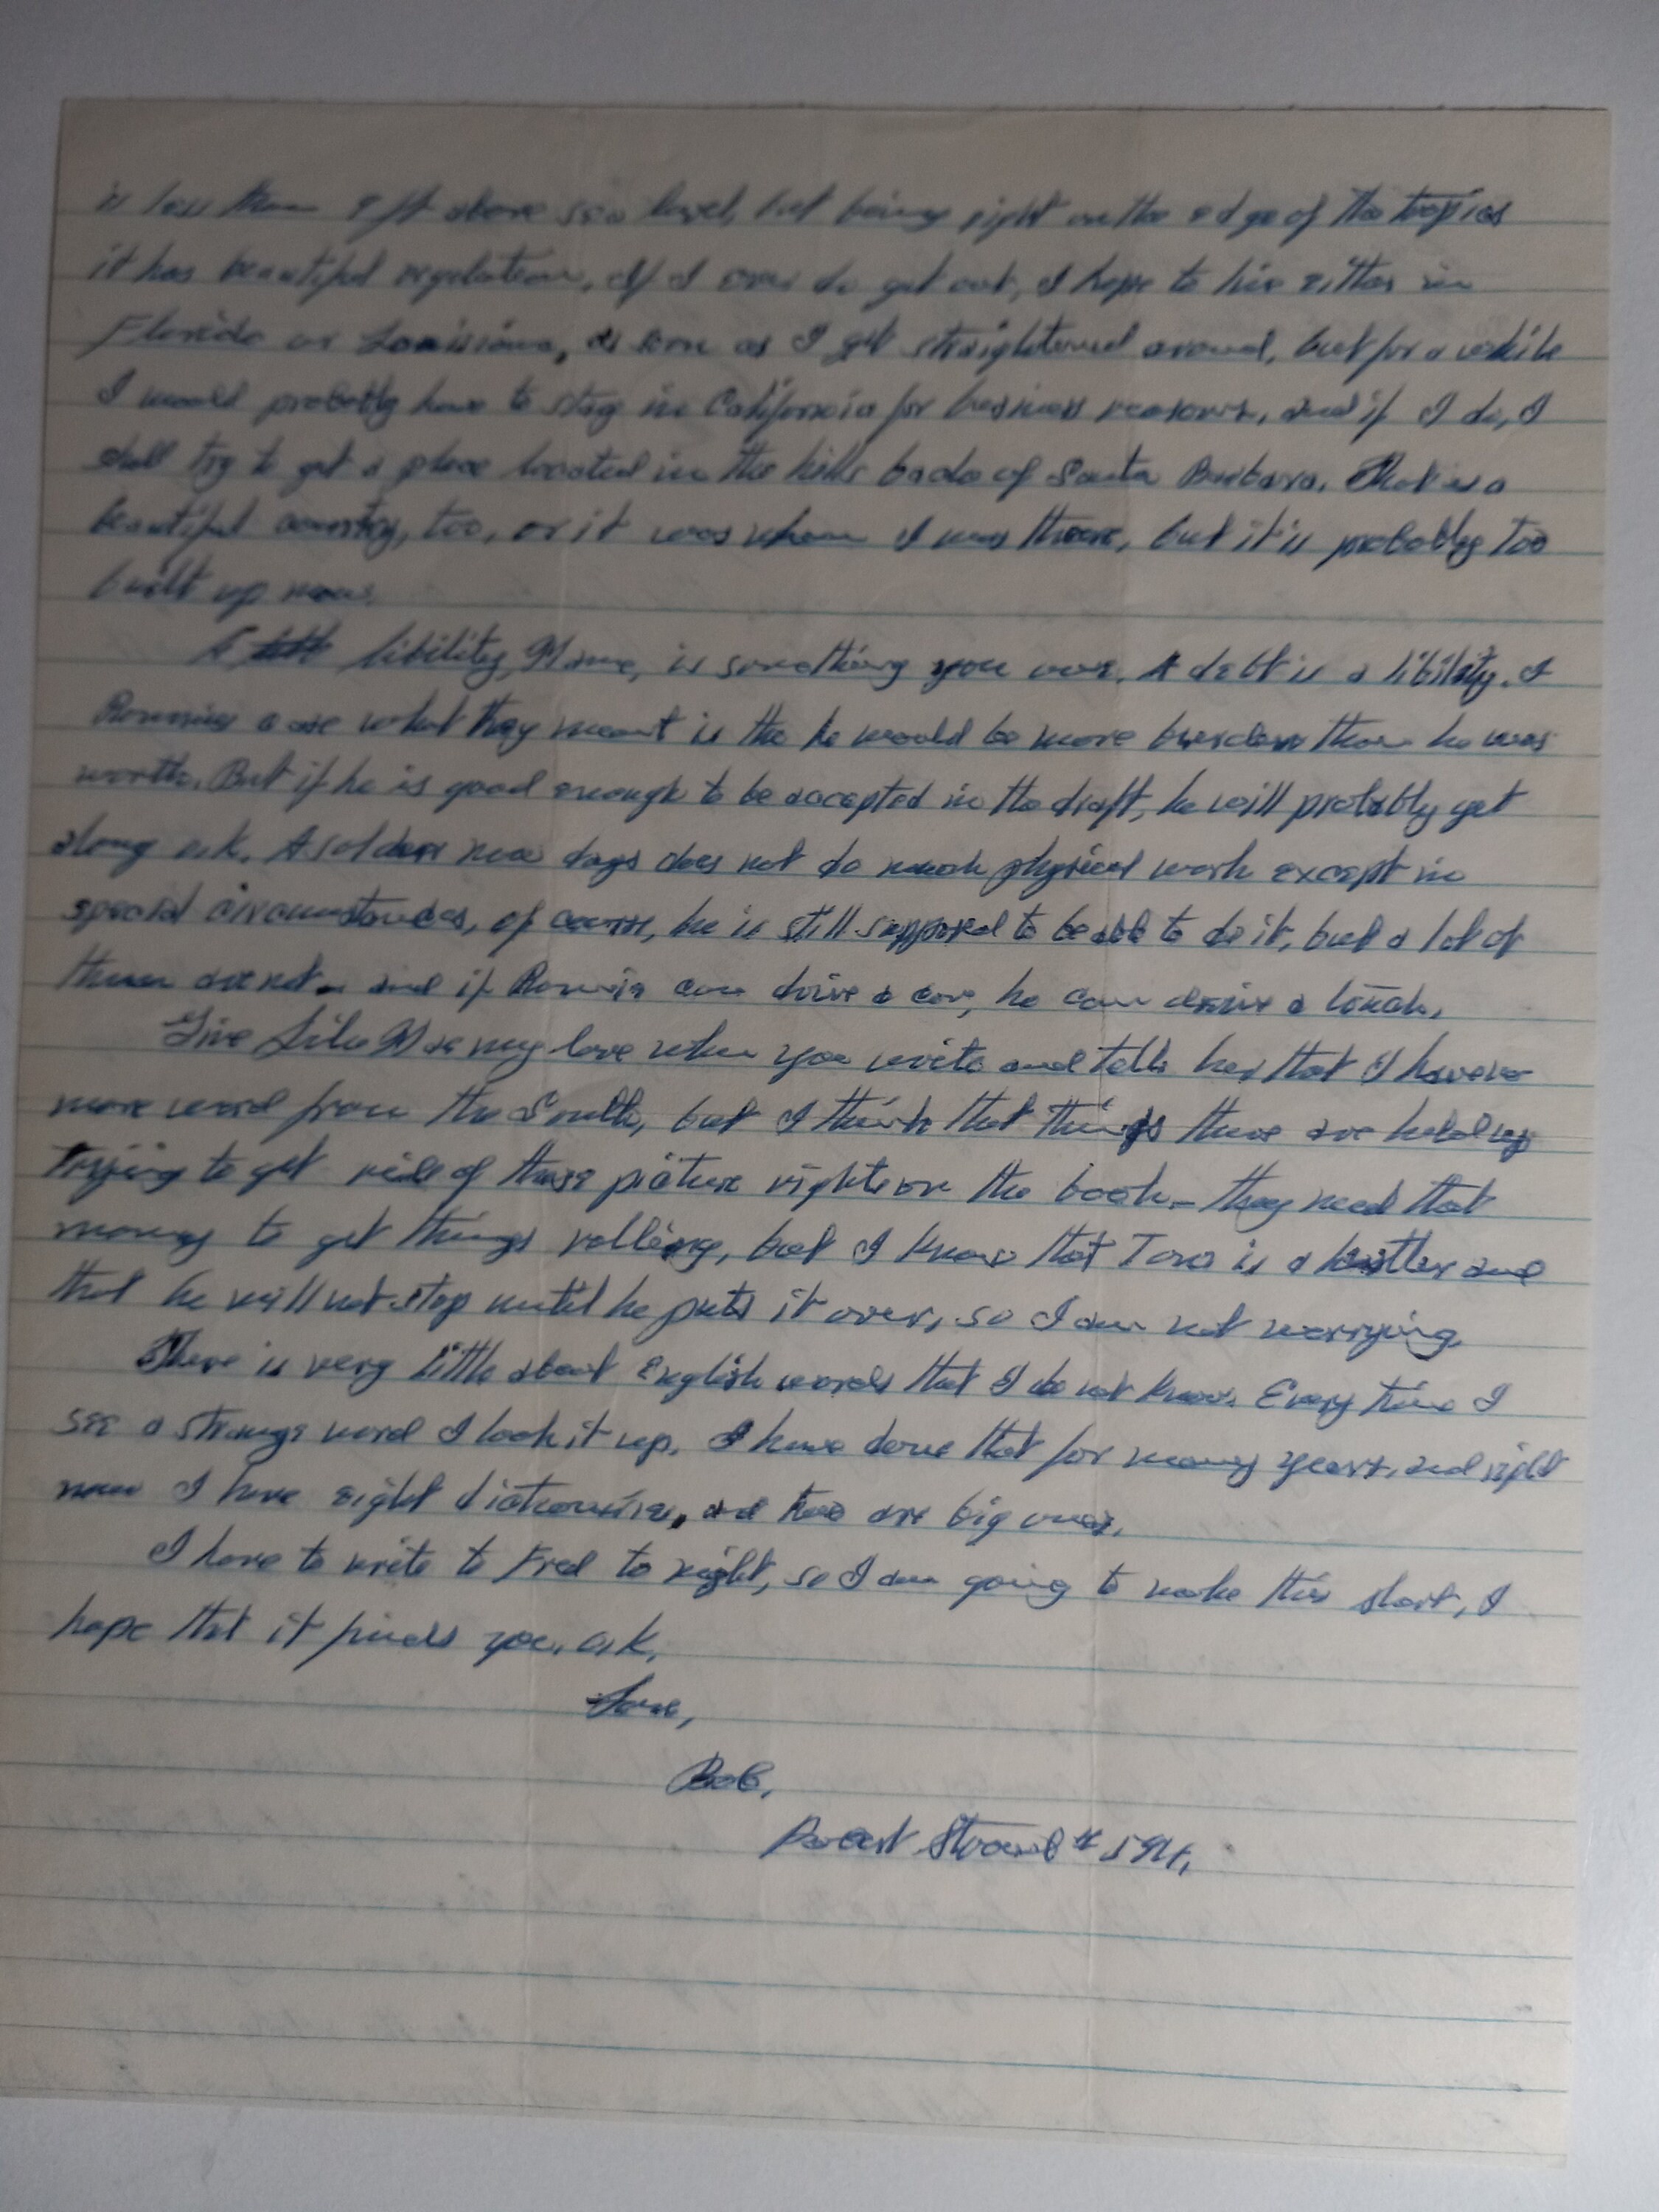 is less than 8 ft above sea level, but being right on the edge of the tropics
it has beautiful vegetation. If I ever do get out, I hope to live either in
Florida or Louisiana, as soon as I get straightened around, but for a while
I would probably have to stay in California for business reasons, and if I do, I
shall try to get a place located in the hills back of Santa Barbara. That is a
beautiful country, too, or it was when I was there, but it is probably too
built up now.
A libility, Mame, is something you owe. A debt is a libility. I
Ronnies case what they meant is the he would be more burden than he was
worth. But if he is good enough to be accepted in the draft, he will probably get
along o.k. A soldier now days does not do much physical work except in
special circumstances, of course, he is still supposed to be able to do it, but a lot of
them are not - and if Ronnie can drive a car, he can drive a truck.
Give Lila Mae my love when you write and tell her that I have no
more word from the South, but I think that things there are held up
trying to get rid of those picture rights on the book - they need that
money to get things rolling, but I know that Tom is a hustler and
that he will not stop until he puts it over, so I am not worrying.
There is very little about English words that I do not know. Every time I
see a strange word I look it up. I have done that for many years, and right
now I have eight dictionaries, and two are big ones.
I have to write to Fred to night, so I am going to make this short, I
hope that it finds you o.k.
Love,
Bob,
Robert Stroud # 594,